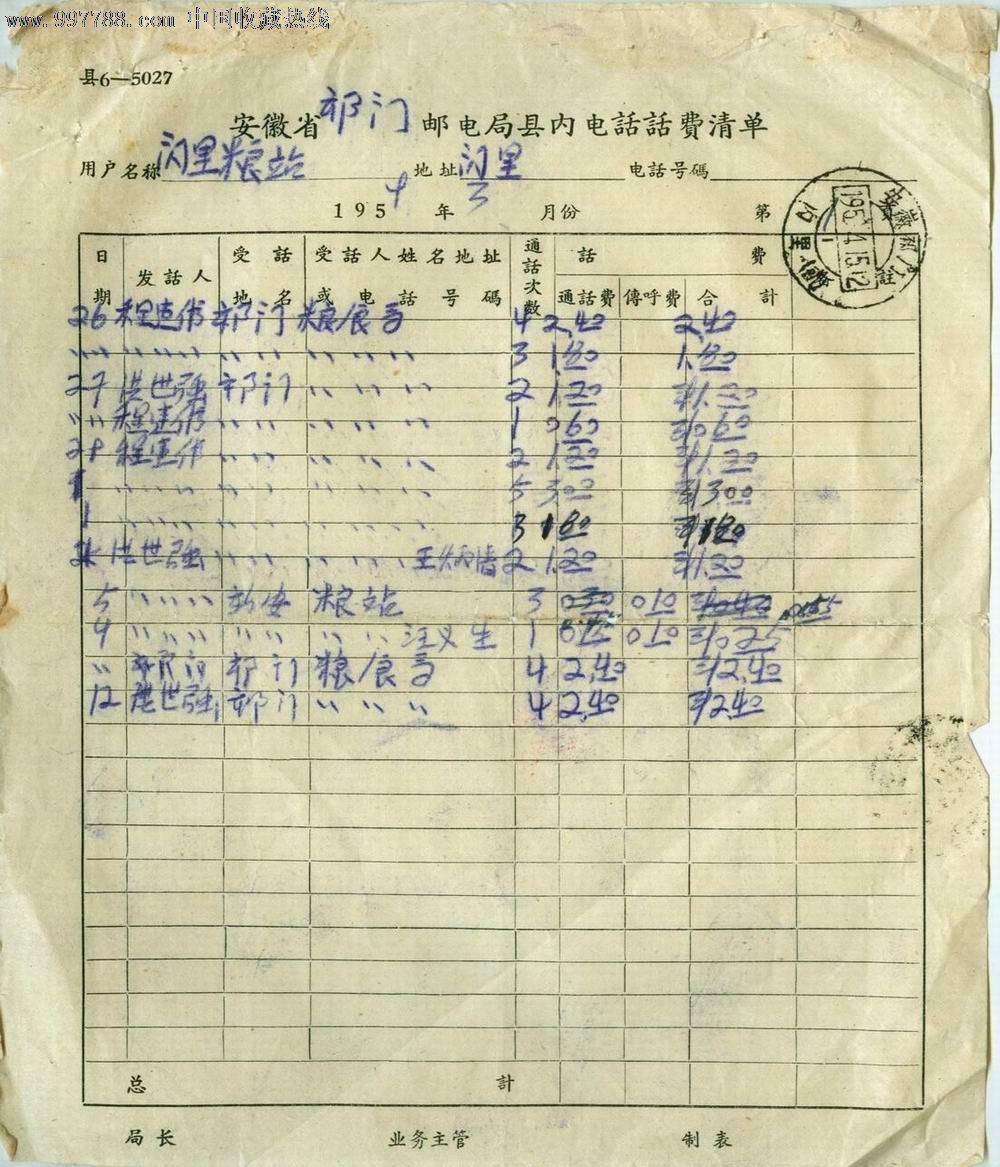 www.997788.com 中国收藏热线
县6—5027
安徽省祁门邮电局县内电話話費清单
用户名称 闪里粮站 地址 闪里 电話号碼
195 年 3 月份 第
日期 发話人 受話地名 受話人姓名地址或电話号碼 通話次数 話費 通話费 傳呼费 合計
26 程連伟 祁门 粮食局 4 2.40 2.40
〃〃 〃〃〃 〃〃 〃〃〃 3 1.80 1.80
27 洪世强 祁门 〃〃〃 2 1.20 1.20
〃〃 程連伟 〃〃 〃〃〃 1 0.60 0.60
28 程連伟 〃〃 〃〃〃 2 1.20 1.20
〃〃〃 〃〃 〃〃〃 5 3.00 3.00
1 〃〃〃 〃〃 〃〃〃 3 1.80 1.80
洪世强 〃〃 〃〃〃 2 1.20 1.20
5 〃〃〃 新安 粮站 3 0.10
9 〃〃〃 〃〃 〃〃 汪义生 1 0.15 0.10 0.25
〃 祁门 粮食局 4 2.40 2.40
12 洪世强 祁门 〃〃〃 4 2.40 2.40
总計
局长 业务主管 制表